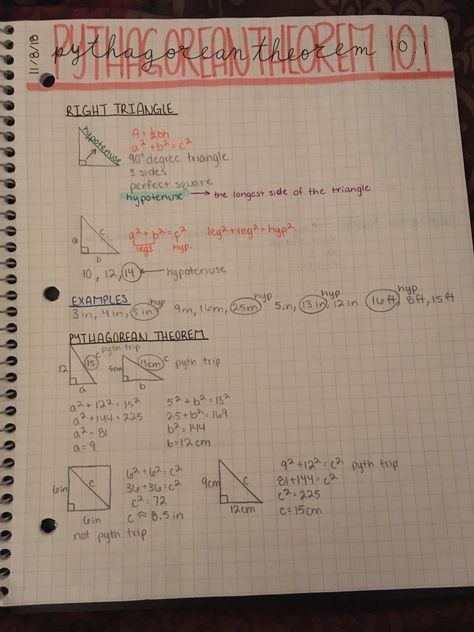 11/8/18
PYTHAGOREAN THEOREM 10.1
pythagorean theorem 10.1
RIGHT TRIANGLE
hypotenuse
A = ½bh
a² + b² = c²
90° degree triangle
3 sides
perfect square
hypotenuse → the longest side of the triangle
a
c
b
a² + b² = c² leg² + leg² = hyp²
legs hyp.
10, 12, 14 ← hypotenuse
EXAMPLES
3 in, 4 in, 5 in hyp 9m, 16m, 25m hyp 5in, 13 in hyp, 12 in 16 ft hyp, 8 ft, 15 ft
PYTHAGOREAN THEOREM
12 15 c pyth trip
a
5cm 13cm c pyth trip
b
a² + 12² = 15²
a² + 144 = 225
a² = 81
a = 9
5² + b² = 13²
25 + b² = 169
b² = 144
b = 12 cm
6in
c
6in
not pyth trip
6² + 6² = c²
36 + 36 = c²
c² = 72
c ≈ 8.5 in
9cm
c
12cm
9² + 12² = c² pyth trip
81 + 144 = c²
c² = 225
c = 15cm